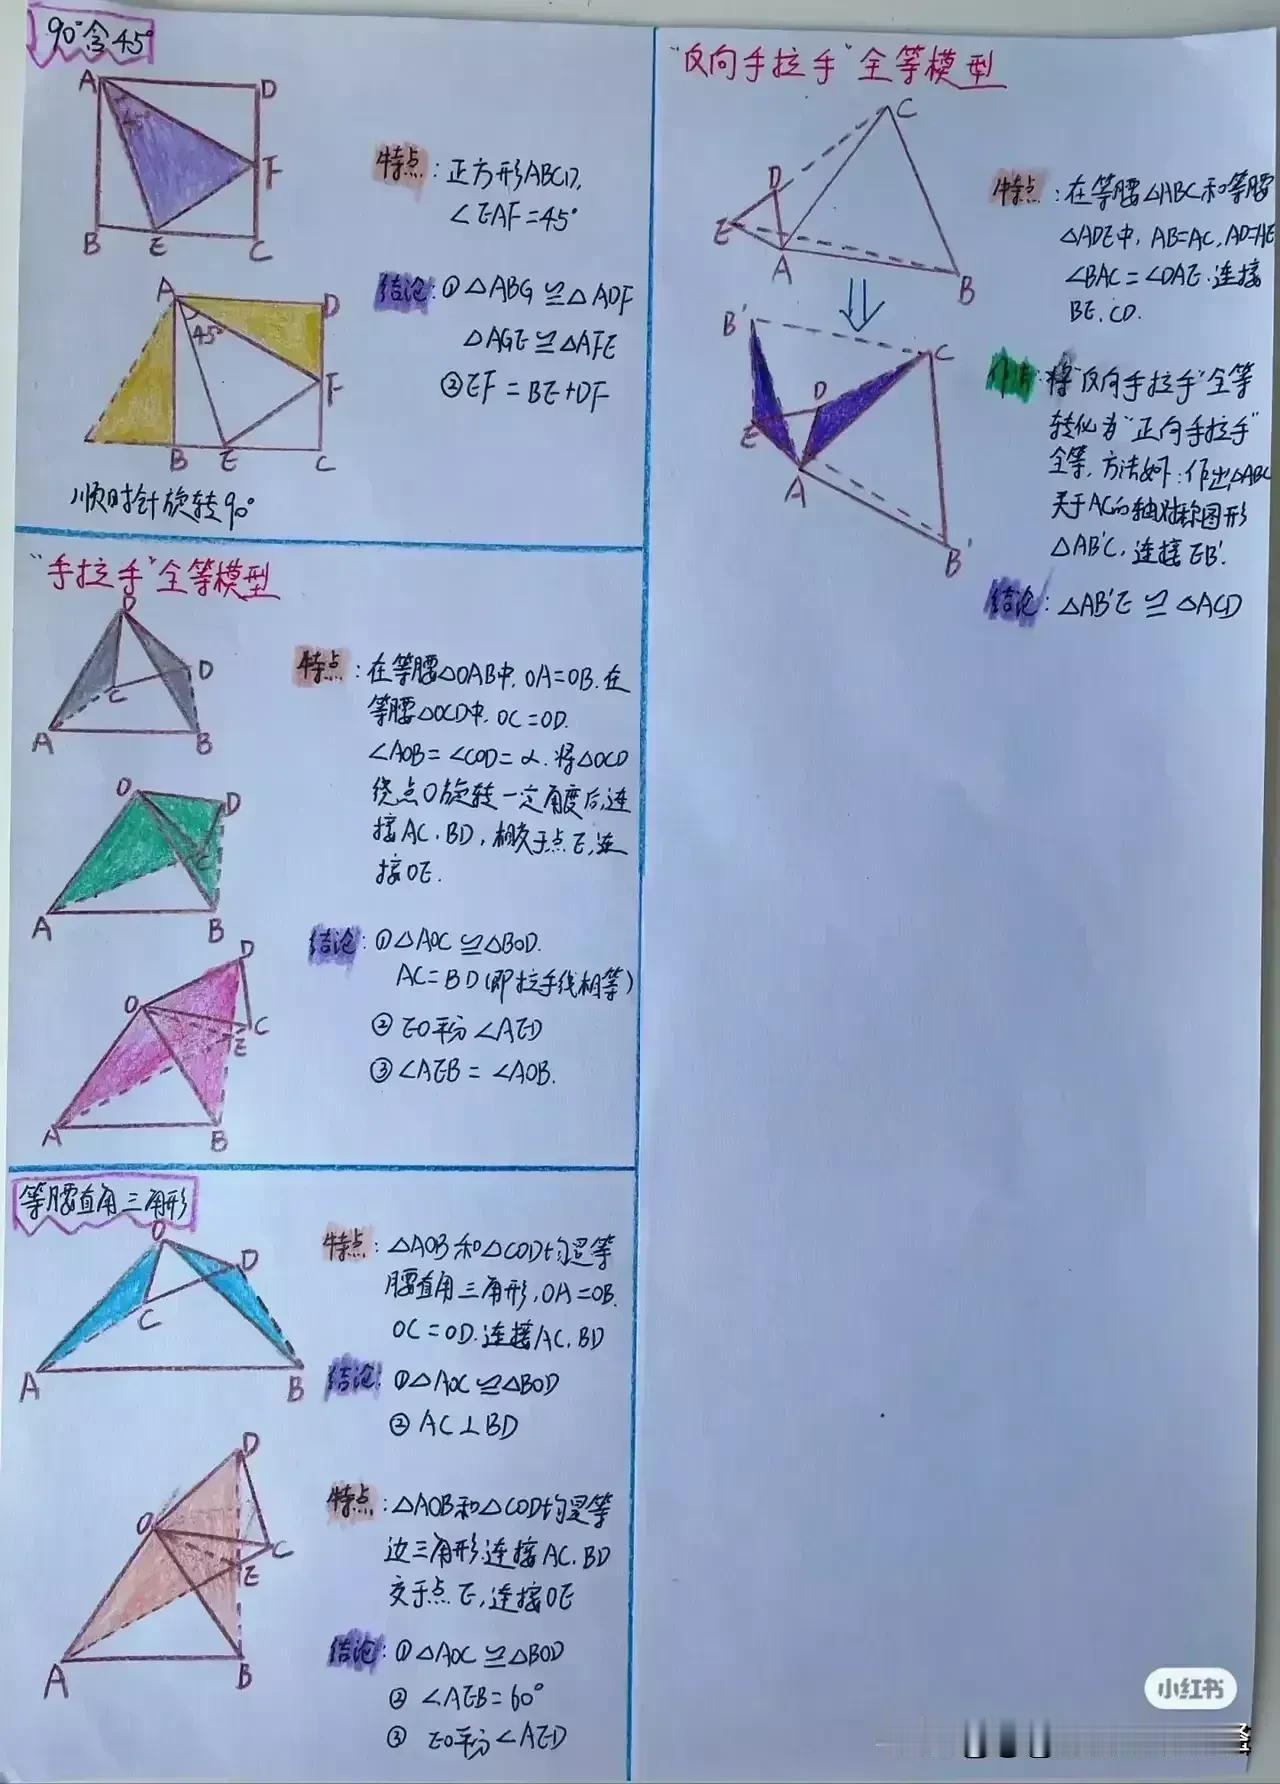 90°含45°
A
D
45°
F
B
E
C
特点：正方形ABCD，
∠EAF=45°
A
D
45°
F
B
E
C
顺时针旋转90°
结论：①△ABG≌△ADF
△AGE≌△AFE
②EF=BE+DF
"手拉手"全等模型
D
C
A
B
O
D
C
A
B
D
O
C
E
A
B
特点：在等腰△OAB中，OA=OB.在
等腰△OCD中，OC=OD.
∠AOB=∠COD=α.将△OCD
绕点O旋转一定角度后，连
接AC，BD，相交于点E，连
接OE.
结论：①△AOC≌△BOD.
AC=BD(即拉手线相等)
②EO平分∠AED
③∠AEB=∠AOB.
等腰直角三角形
O
D
C
A
B
特点：△AOB和△COD均是等
腰直角三角形，OA=OB.
OC=OD.连接AC，BD
结论：①△AOC≌△BOD
②AC⊥BD
D
O
C
E
A
B
特点：△AOB和△COD均是等
边三角形.连接AC，BD
交于点E，连接OE
结论：①△AOC≌△BOD
②∠AEB=60°
③EO平分∠AED
"反向手拉手"全等模型
C
D
E
A
B
B'
C
D
E
A
B'
特点：在等腰△ABC和等腰
△ADE中，AB=AC，AD=AE
∠BAC=∠DAE.连接
BE，CD.
将"反向手拉手"全等
转化为"正向手拉手"
全等，方法如下：作出△ABC
关于AC的轴对称图形
△AB'C，连接EB'.
结论：△AB'E≌△ACD
小红书